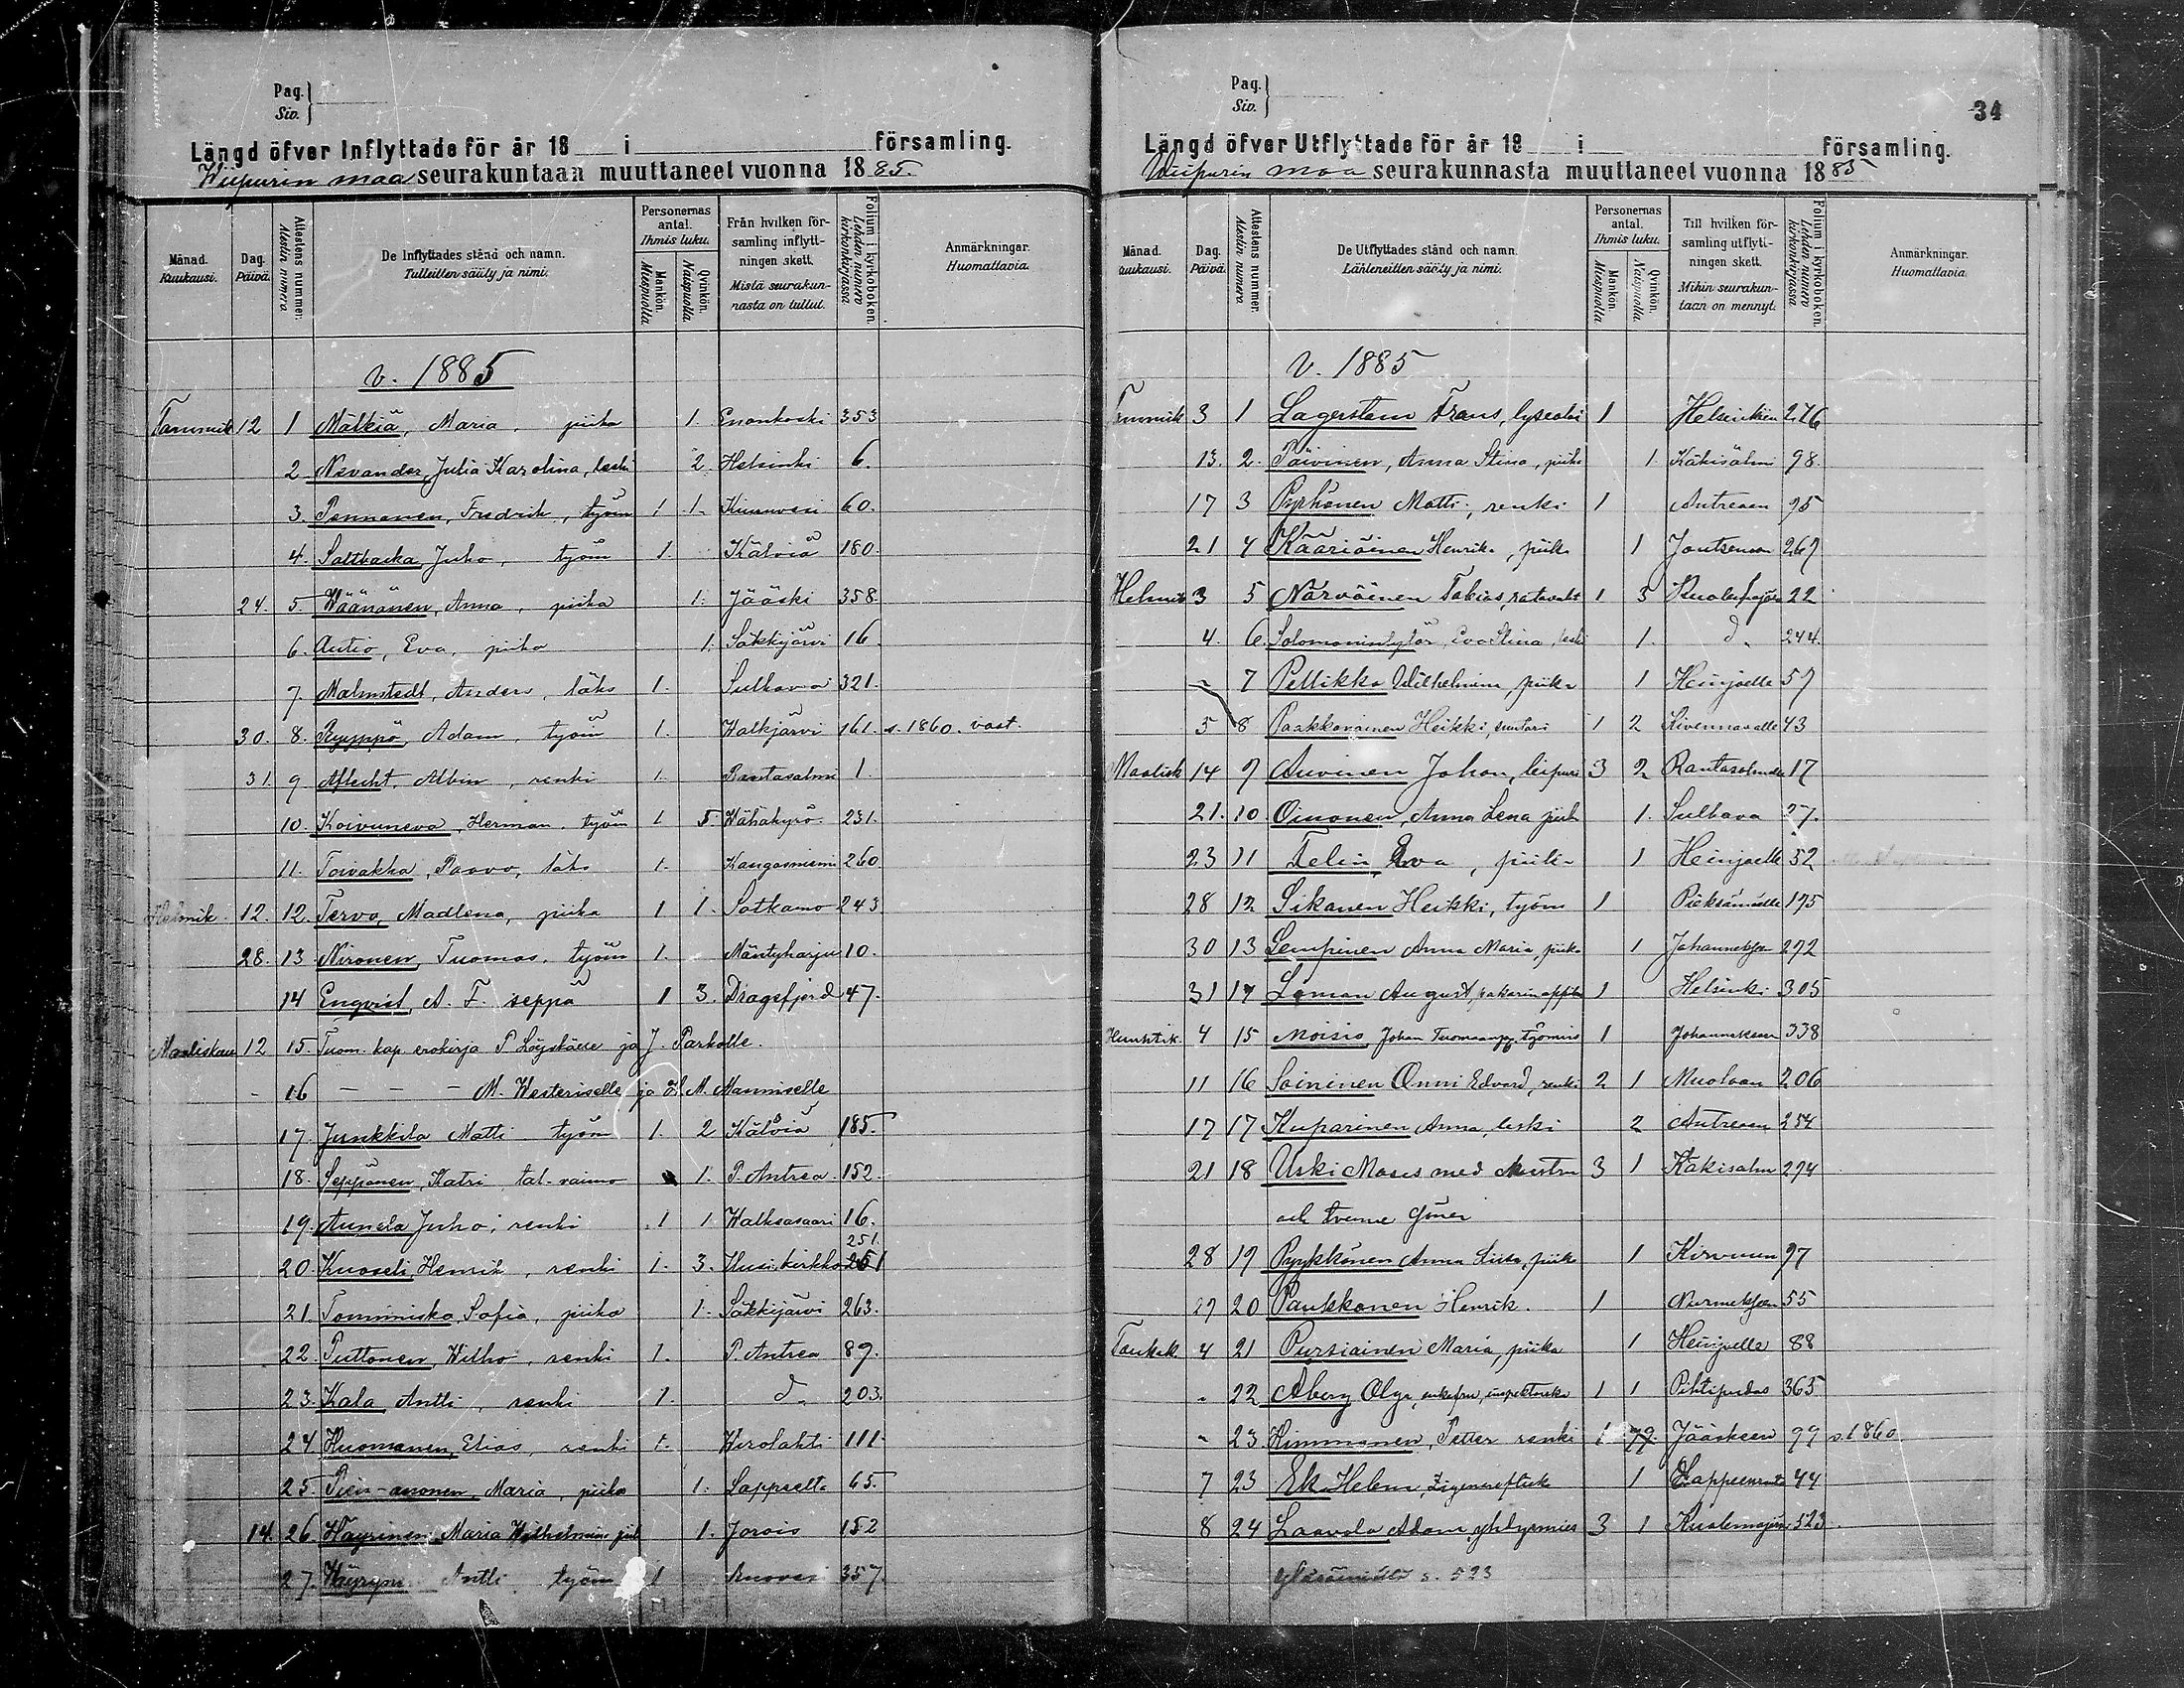 Pag.
Siv.
Längd öfver Inflyttade för år 18 i församling.
Wiipurin maa seurakuntaan muuttaneet vuonna 1885.
Månad. Kuukausi.
Dag. Päivä.
Attestens nummer. Alestin numero
De Inflyttades stånd och namn. Tulleitten sääty ja nimi.
Personernas antal. Ihmis luku.
Mankön. Miespuolia
Qvinkön. Naispuolia
Från hvilken församling inflyttningen skett. Mistä seurakunnasta on tullut.
Folium i kyrkoboken. Lehden numero kirkonkirjassa
Anmärkningar. Huomattavia.
v. 1885
Tammik 12 1 Mälkiä, Maria, piika 1. Enonkoski 353
2 Nevander, Julia Karolina, leski 2 Helsinki 6.
3. Pennanen, Fredrik, työm 1 1. 60.
4. Saltbacka Juho, työm 1. Kälviä 180.
24. 5 Wäänänen, Anna, piika 1. Jääski 358
6. Autio, Eva, piika 1. Säkkijärvi 16
7. Malmstedt, Anders, itäs 1. Sulkava 321.
30. 8. Ryyppö, Adam, työm 1. Walkjärvi 161. s. 1860. vast.
31. 9 Albin, renki 1. Rantasalmi 1.
10. Koivuneva, Herman, työm 1 5. Wähäkyrö 231.
11. Toivakka, Paavo, 1. Kangasniemi 260
Helmik. 12. 12. Tervo, Madlena, piika 1 1. Sotkamo 243
28. 13 Nironen, Tuomas, työm 1. Mäntyharju 10.
14 Engvist, A. F. seppä 1 3. Dragsfjerd 47.
Maaliskuu 12 15. Tuom. kap. erokirja P. ja J. Parkolle.
16 — — — M. Westeriselle ja M. Manniselle
17. Junkkila Matti työm 1. 2 Kälviä 185.
18. Seppänen, Katri, tal. vaimo 1. P. Antrea 152.
19. Aunela Juho, renki 1 1 Walkeasaari 16.
251.
20. Kuoseli, Henrik, renki 1. 3. Uusikirkko 251
21. Tommiska, Sofia, piika 1. Säkkijärvi 263.
22. Puttonen, Wilho, renki 1. P. Antrea 89.
23. Kala Antti, renki 1. d. 203.
24 Huomanen, Elias, renki 1. Wirolahti 111.
25. Maria, piika 1. Lappeelta 65.
14. 26. Häyrinen, Maria Wilhelmina 1. Jorois 152
27. Antti työm 1 357.
Pag.
Siv.
34
Längd öfver Utflyttade för år 18 i församling.
Wiipurin maa seurakunnasta muuttaneet vuonna 1885
Månad. Kuukausi.
Dag. Päivä.
Attestens nummer. Alestin numero
De Utflyttades stånd och namn. Lähteneitten sääty ja nimi.
Personernas antal. Ihmis luku.
Mankön. Miespuolia
Qvinkön. Naispuolia.
Till hvilken församling utflyttningen skett. Mihin seurakuntaan on mennyt.
Folium i kyrkoboken. Lehden numero kirkonkirjassa
Anmärkningar. Huomattavia.
v. 1885
Tammik 3 1 Lagerstam Frans, 1 Helsinkiin 276
13. 2. Päivinen, Anna Stina, piika 1. Käkisalmi 98.
17 3 Pyhönen Matti, renki 1 Antreaan 95
21 4 Kääriäinen Henrika, piika 1 Joutsenoon 267
Helmik 3 5 Närväinen Tobias, ratavaht 1 3 22
4. 6. Solomonintytär, Eva Stina, leski 1. d. 244.
7 Pellikka Wilhelmina, piika 1 Heinjoelle 57
5 8 Paakkonainen Heikki, suutari 1 2 Kivennavalle 43
Maalisk 14 9 Auvinen Johan, leipuri 3 2 Rantasalmelle 17
21. 10 Oinonen, Anna Lena piika 1. Sulkava 27.
23 11 Telin Eva, piika 1 Heinjoelle 52
28 12 Sikanen Heikki, työm 1 Pieksämäelle 195
30 13 Lempinen Anna Maria, piika 1 Johanneksen 272
31 14 Loman August, 1 Helsinki 305
Huhtik. 4 15 Moisio, Johan Tuomaanp. työmies 1 Johanneksen 338
11 16 Soininen Onni Edvard, renki 2 1 Muolaan 206
17 17 Kuparinen Anna, leski 2 Antreaan 254
21 18 Uski Moses med hustru 3 1 Käkisalmi 294
och tvenne söner
28 19 Pyykkönen Anna Liisa, piika 1 Kirvuun 97
29 20 Paukkonen Henrik. 1 Nurmeksen 55
Toukok 4 21 Pursiainen Maria, piika 1 Heinjoelle 88
22 Åberg Olga, enkefru, 1 1 Pihtipudas 365
23 Himmonen, Petter renki 1 Jääskeen 99 s. 1860
7 23 Ek Helena, 1 Lappeenranta 44
8 24 Laavola Adam 3 1 323.
s. 523